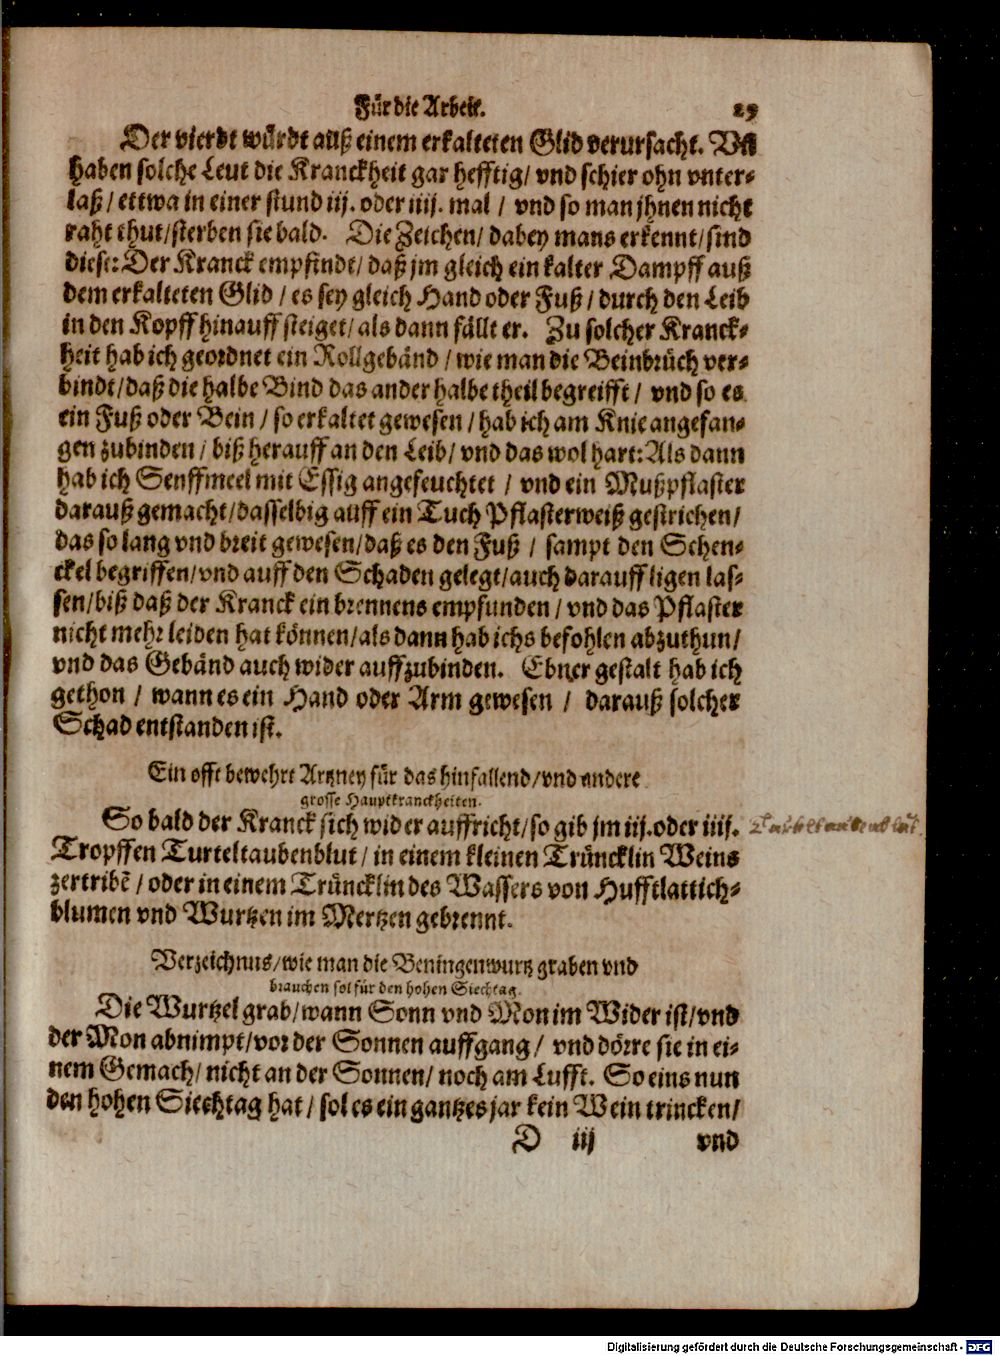 Für die Arbeit. 29
Der vierdt würdt auß einem erkalteten Glid verursacht. Vñ
haben solche Leut die Kranckheit gar hefftig/ vnd schier ohn vnter-
laß/ ettwa in einer stund iij. oder iiij. mal / vnd so man jhnen nicht
raht thut/sterben sie bald. Die Zeichen/ dabey mans erkennt/sind
diese: Der Kranck empfindt/ daß jm gleich ein kalter Dampff auß
dem erkalteten Glid / es sey gleich Hand oder Fuß / durch den Leib
in den Kopff hinauff steiget/ als dann fällt er. Zu solcher Kranck-
heit hab ich geordnet ein Rollgebänd / wie man die Beinbrüch ver-
bindt/daß die halbe Bind das ander halbe theil begreifft/ vnd so es
ein Fuß oder Bein / so erkaltet gewesen / hab ich am Knie angefan-
gen zubinden / biß herauff an den Leib/ vnd das wol hart: Als dann
hab ich Senffmeel mit Essig angefeuchtet / vnd ein Mußpflaster
darauß gemacht/dasselbig auff ein Tuch Pflasterweiß gestrichen/
das so lang vnd breit gewesen/daß es den Fuß / sampt den Schen-
ckel begriffen/vnd auff den Schaden gelegt/auch darauff ligen las-
sen/biß daß der Kranck ein brennens empfunden / vnd das Pflaster
nicht mehr leiden hat können/als dann hab ichs befohlen abzuthun/
vnd das Gebänd auch wider auffzubinden. Ebner gestalt hab ich
gethon / wann es ein Hand oder Arm gewesen / darauß solcher
Schad entstanden ist.
Ein offt bewehrt Artzney für das hinfallend/vnd andere
grosse Hauptkranckheiten.
So bald der Kranck sich wider auffricht/so gib jm iij. oder iiij.
Tropffen Turteltaubenblut / in einem kleinen Trüncklin Weins
zertribẽ / oder in einem Trüncklin des Wassers von Hufftlattich-
blumen vnd Wurtzen im Mertzen gebrennt.
Verzeichnus/wie man die Beningenwurtz graben vnd
brauchen sol für den hohen Siechtag.
Die Wurtzel grab/wann Sonn vnd Mon im Wider ist/vnd
der Mon abnimpt/vor der Sonnen auffgang / vnd dörre sie in ei-
nem Gemach/ nicht an der Sonnen/ noch am Lufft. So eins nun
den hohen Siechtag hat / sol es ein gantzes jar kein Wein trincken/
D iij vnd
Digitalisierung gefördert durch die Deutsche Forschungsgemeinschaft - DFG